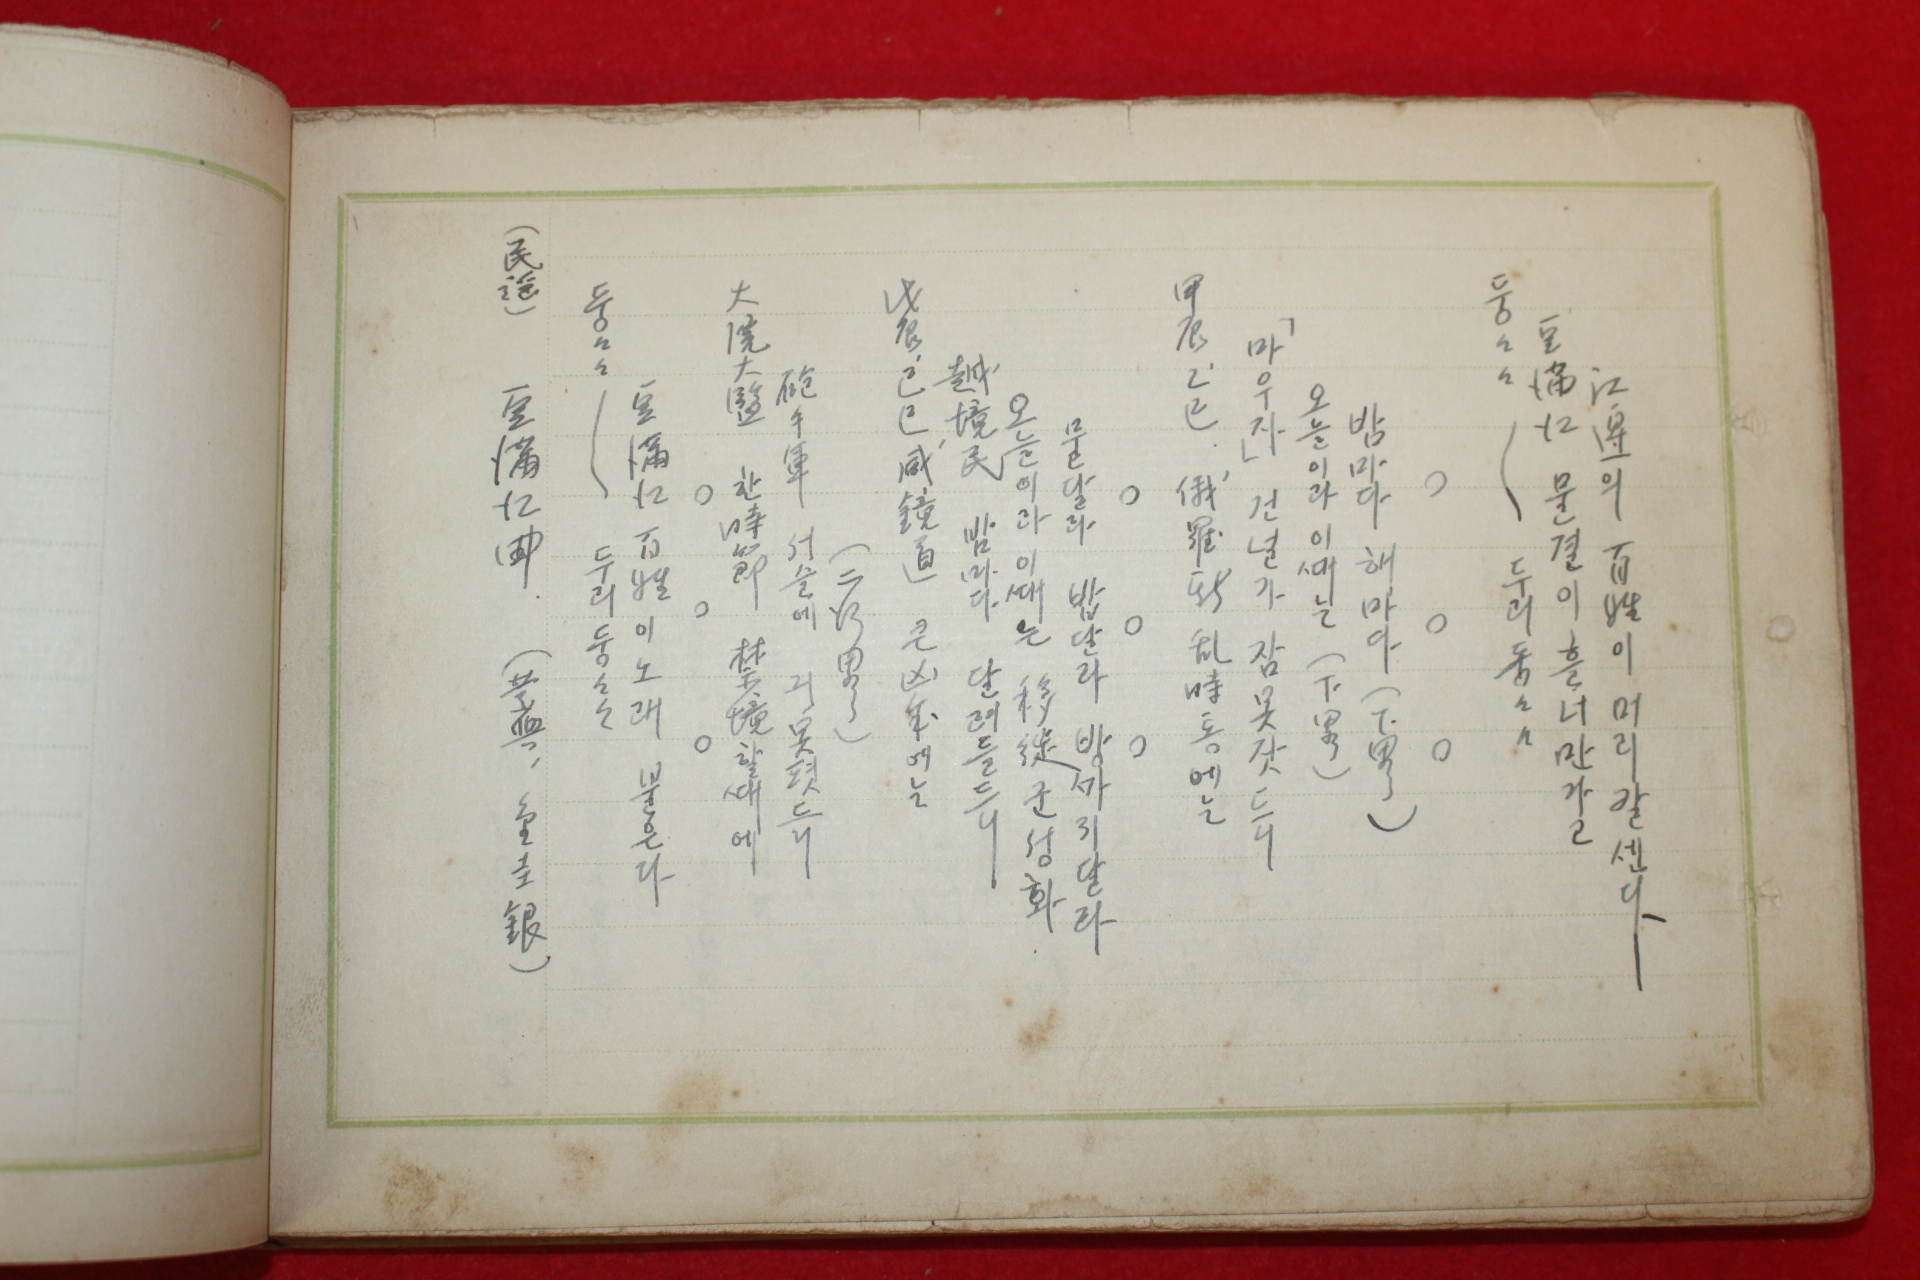 (民謠) 豆滿江曲. (, 金圭銀)
둥〻〻 ～ 두리둥〻〻
豆滿江百姓이 노래 불은다
○ ○ ○
大院大監 한時節 禁境할때에
砲手軍 서슬에 긔못폇드니
(二行畧)
戊辰, 己巳 咸鏡道 큰 凶年에는
「越境民」 밤마다 달려들드니
오늘이라 이때는 移徙군 성화
물달라 밥달라 방까지달라
○ ○ ○
甲辰, 乙巳. 俄羅斯 乱時통에는
「마우자」 건널가 잠못잣드니
오늘이라 이때는 (下畧)
밤마다 해마다 (下畧)
○ ○ ○
둥〻〻 ～ 두리둥〻〻
豆滿江 물결이 흘너만가고
江邊의 百姓이 머리칼 센다